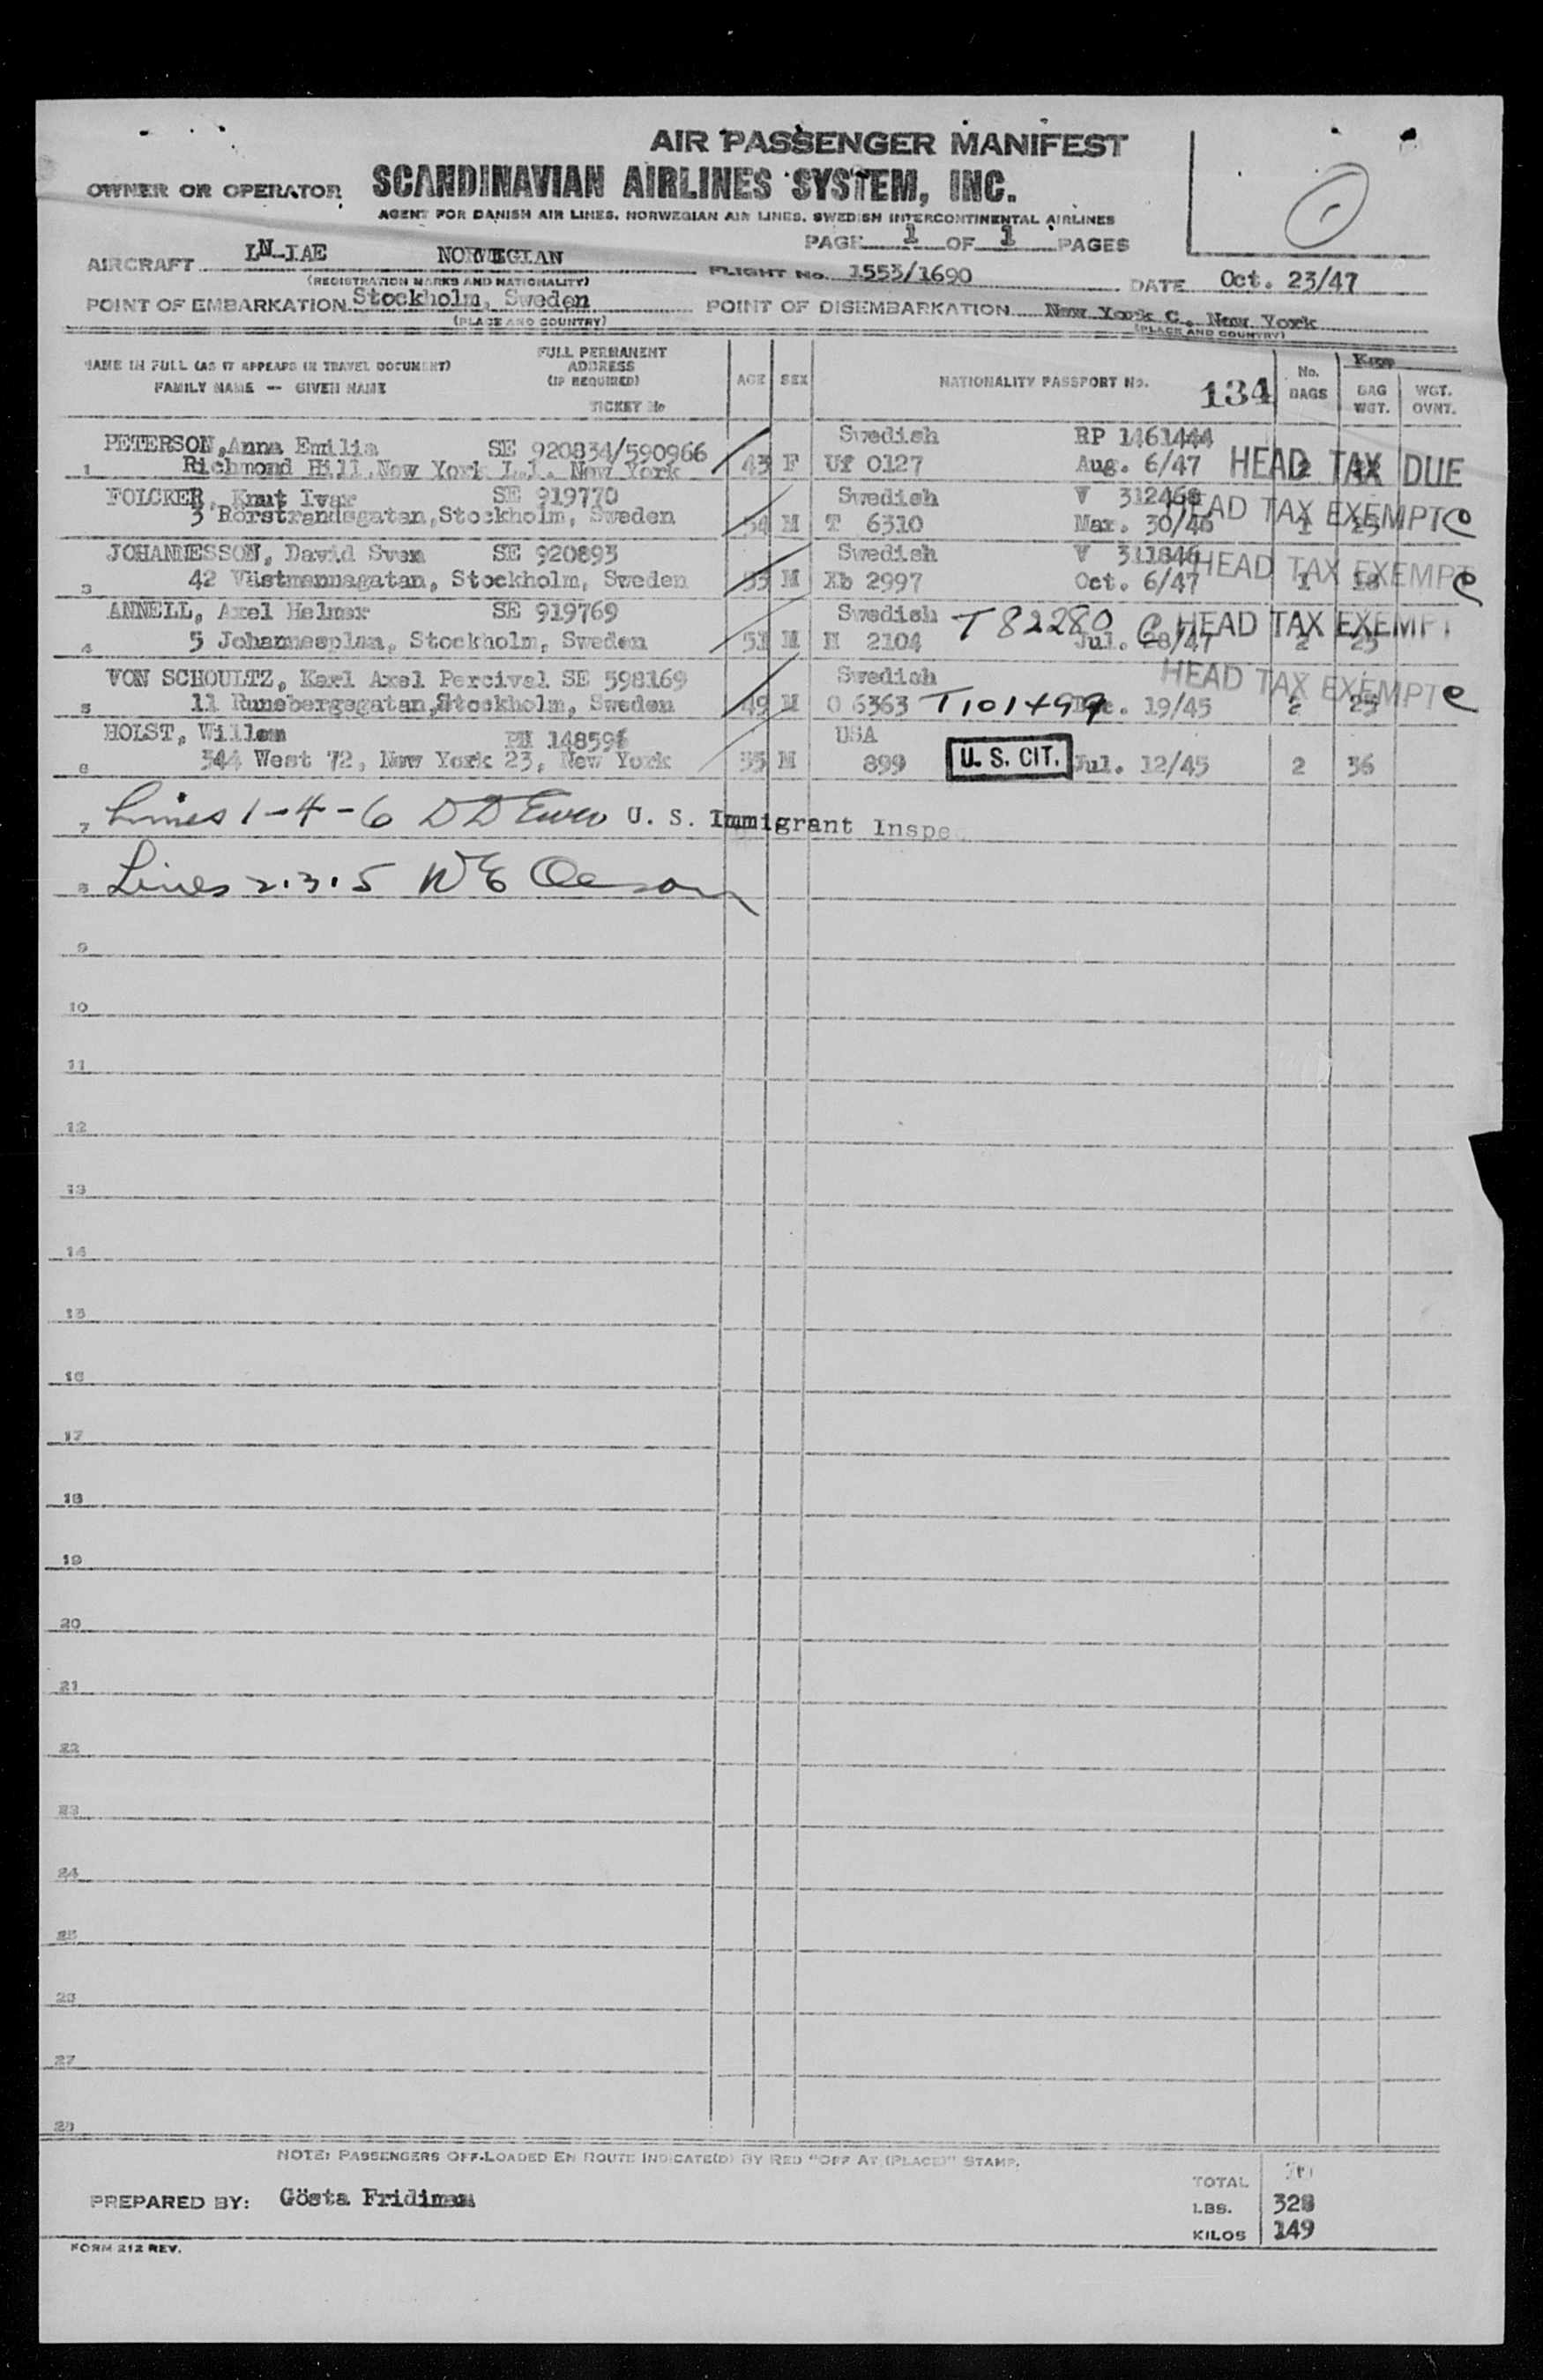 AIR PASSENGER MANIFEST
OWNER OR OPERATOR SCANDINAVIAN AIRLINES SYSTEM, INC.
AGENT FOR DANISH AIR LINES, NORWEGIAN AIR LINES, SWEDISH INTERCONTINENTAL AIRLINES
PAGE 1 OF 1 PAGES
AIRCRAFT LN-IAE NORWEGIAN FLIGHT No. 1553/1690 DATE Oct. 23/47
(REGISTRATION MARKS AND NATIONALITY)
POINT OF EMBARKATION Stockholm, Sweden POINT OF DISEMBARKATION New York C., New York
(PLACE AND COUNTRY) (PLACE AND COUNTRY)
NAME IN FULL (AS IT APPEARS IN TRAVEL DOCUMENT)
FAMILY NAME — GIVEN NAME
FULL PERMANENT
ADDRESS
(IF REQUIRED)
TICKET No
AGE SEX NATIONALITY PASSPORT No. 134 No. BAGS BAG WGT. WGT. OVNT.
PETERSON, Anna Emilia SE 920834/590966 Swedish RP 1461444
1 Richmond Hill, New York L.I. New York 43 F Uf 0127 Aug. 6/47 2 HEAD TAX DUE
FOLCKER, Knut Ivar SE 919770 Swedish V
3 Rörstrandsgatan, Stockholm, Sweden 54 M T 6310 Mar. 30/46 1 HEAD TAX EXEMPT
JOHANNESSON, David Sven SE 920893 Swedish V 311846
3 42 Västmannagatan, Stockholm, Sweden M Xb 2997 Oct. 6/47 1 18 HEAD TAX EXEMPT
ANNELL, Axel Helmer SE 919769 Swedish T 82280
4 5 Johannesplan, Stockholm, Sweden 51 M 2104 Jul. 28/47 2 25 HEAD TAX EXEMPT
VON SCHOULTZ, Karl Axel Percival SE 598169 Swedish
5 11 Runebergsgatan, Stockholm, Sweden 49 M O 6363 T101499 19/45 2 25 HEAD TAX EXEMPT
HOLST, Willem USA
6 344 West 72, New York 23, New York 55 M 899 U. S. CIT. Jul. 12/45 2 36
7 Lines 1-4-6 U. S. Immigrant Inspe
8 Lines 2.3.5 W E
9
10
11
12
13
14
15
16
17
18
19
20
21
22
23
24
25
26
27
28
NOTE: PASSENGERS OFF-LOADED EN ROUTE INDICATE(D) BY RED "OFF AT (PLACE)" STAMP.
TOTAL
PREPARED BY: Gösta LBS. 328
KILOS 149
FORM 212 REV.